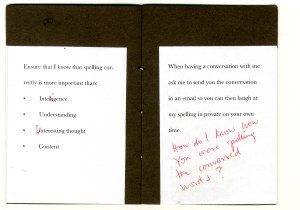 Ensure that I know that spelling cor-
rectly is more important than:
• Intelligence
• Understanding
• Interesting thought
• Content
When having a conversation with me
ask me to send you the conversation
in an email so you can then laugh at
my spelling in private on your own
time.
How do I know how
You were spelling
the conversed
words?